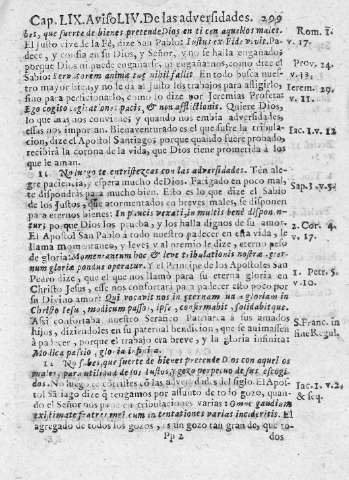 Cap. LIX. Aviso LIV. De las adversidades. 299
bes, que suerte de bienes pretende Dios en ti con aquellos males.
El justo vive de la Fè, dize San Pablo: Iustus ex Fide vivit. Pa-
dece, y confia en su Dios, y Señor, y no se halla enganado
porque Dios ni puede enganarlo, ni engañarnos, como dize el
Sabio: En todo busca nuestro
mayor bien, y no le da al Justo los trabajos para afligirlo,
sino para perficionarlo, como lo dize por Jeremias Profeta:
Ego cogito cogitationes pacis, & non afflictionis. Quiere Dios,
lo que mas nos conviene, y quando nos embia adversidades,
essas nos importan. Bienaventurado es el que sufre la tribula-
cion, dize el Apostol Santiago; porque quando fuere probado,
recibirà la corona de la vida, que Dios tiene prometida à los
que le aman.
11 No luego te entristezcas con las adversidades. Ten ale-
gre paciencia, y espera mucho de Dios. Fatigado en poco mal,
te dispondràs para mucho bien. Esto es lo que dize el Sabio
de los Justos, que atormentados en breves males, se disponen
para eternos bienes: In paucis vexati, in multis bene dispon n-
tur; porque Dios los prueba, y los halla dignos de su amor.
El Apostol San Pablo à todo nuestro padecer en esta vida, le
llama momentaneo, y leve; y al premio le dize, eterno peso
de gloria: Momentaneum hoc & leve tribulationis nostra, æter-
num gloria pondus operatur. Y el Principe de los Apostoles San
Pedro dize, que el que nos llamò para su eterna gloria en
Christo Jesus, esse nos confortarà para padecer esto poco por
su Divino amor: Qui vocavit nos in æternam suam gloriam in
Christo Iesu, modicum passos, ipse, confirmabit, solidabitque.
Assi confortaba nuestro Serafico Patriarca à sus amados
hijos, diziendoles en su paternal bendicion, que se animassen
à padecer, porque el trabajo era breve, y la gloria infinita:
Modica passio, gloria infinita.
12 No sabes, que suerte de bienes pretende Dios con aquellos
males, para utilidad de los Justos, y gozo perpetuo de sus escogidos.
No luego te contristes, con las adversidades del siglo. El Apos-
tol Santiago dize que tengamos por assunto de todo gozo, quan-
do el Señor nos pone en tribulaciones varias: Omne gaudium
existimate fratres mei cum in tentationes varias incideritis. El
agregado de todos los gozos, es un gozo tan grande, que to-
Pp 2 dos
Rom. 1.
v. 17.
Prov. 14.
v. 13.
Ierem. 29.
v. 11.
Iac. 1. v. 12
Sap. 3. v. 5.
2. Cor. 4.
v. 17.
1. Petr. 5.
v. 10.
S. Franc. in
fine Regul.
Iac. 1. v. 2.
& seq.